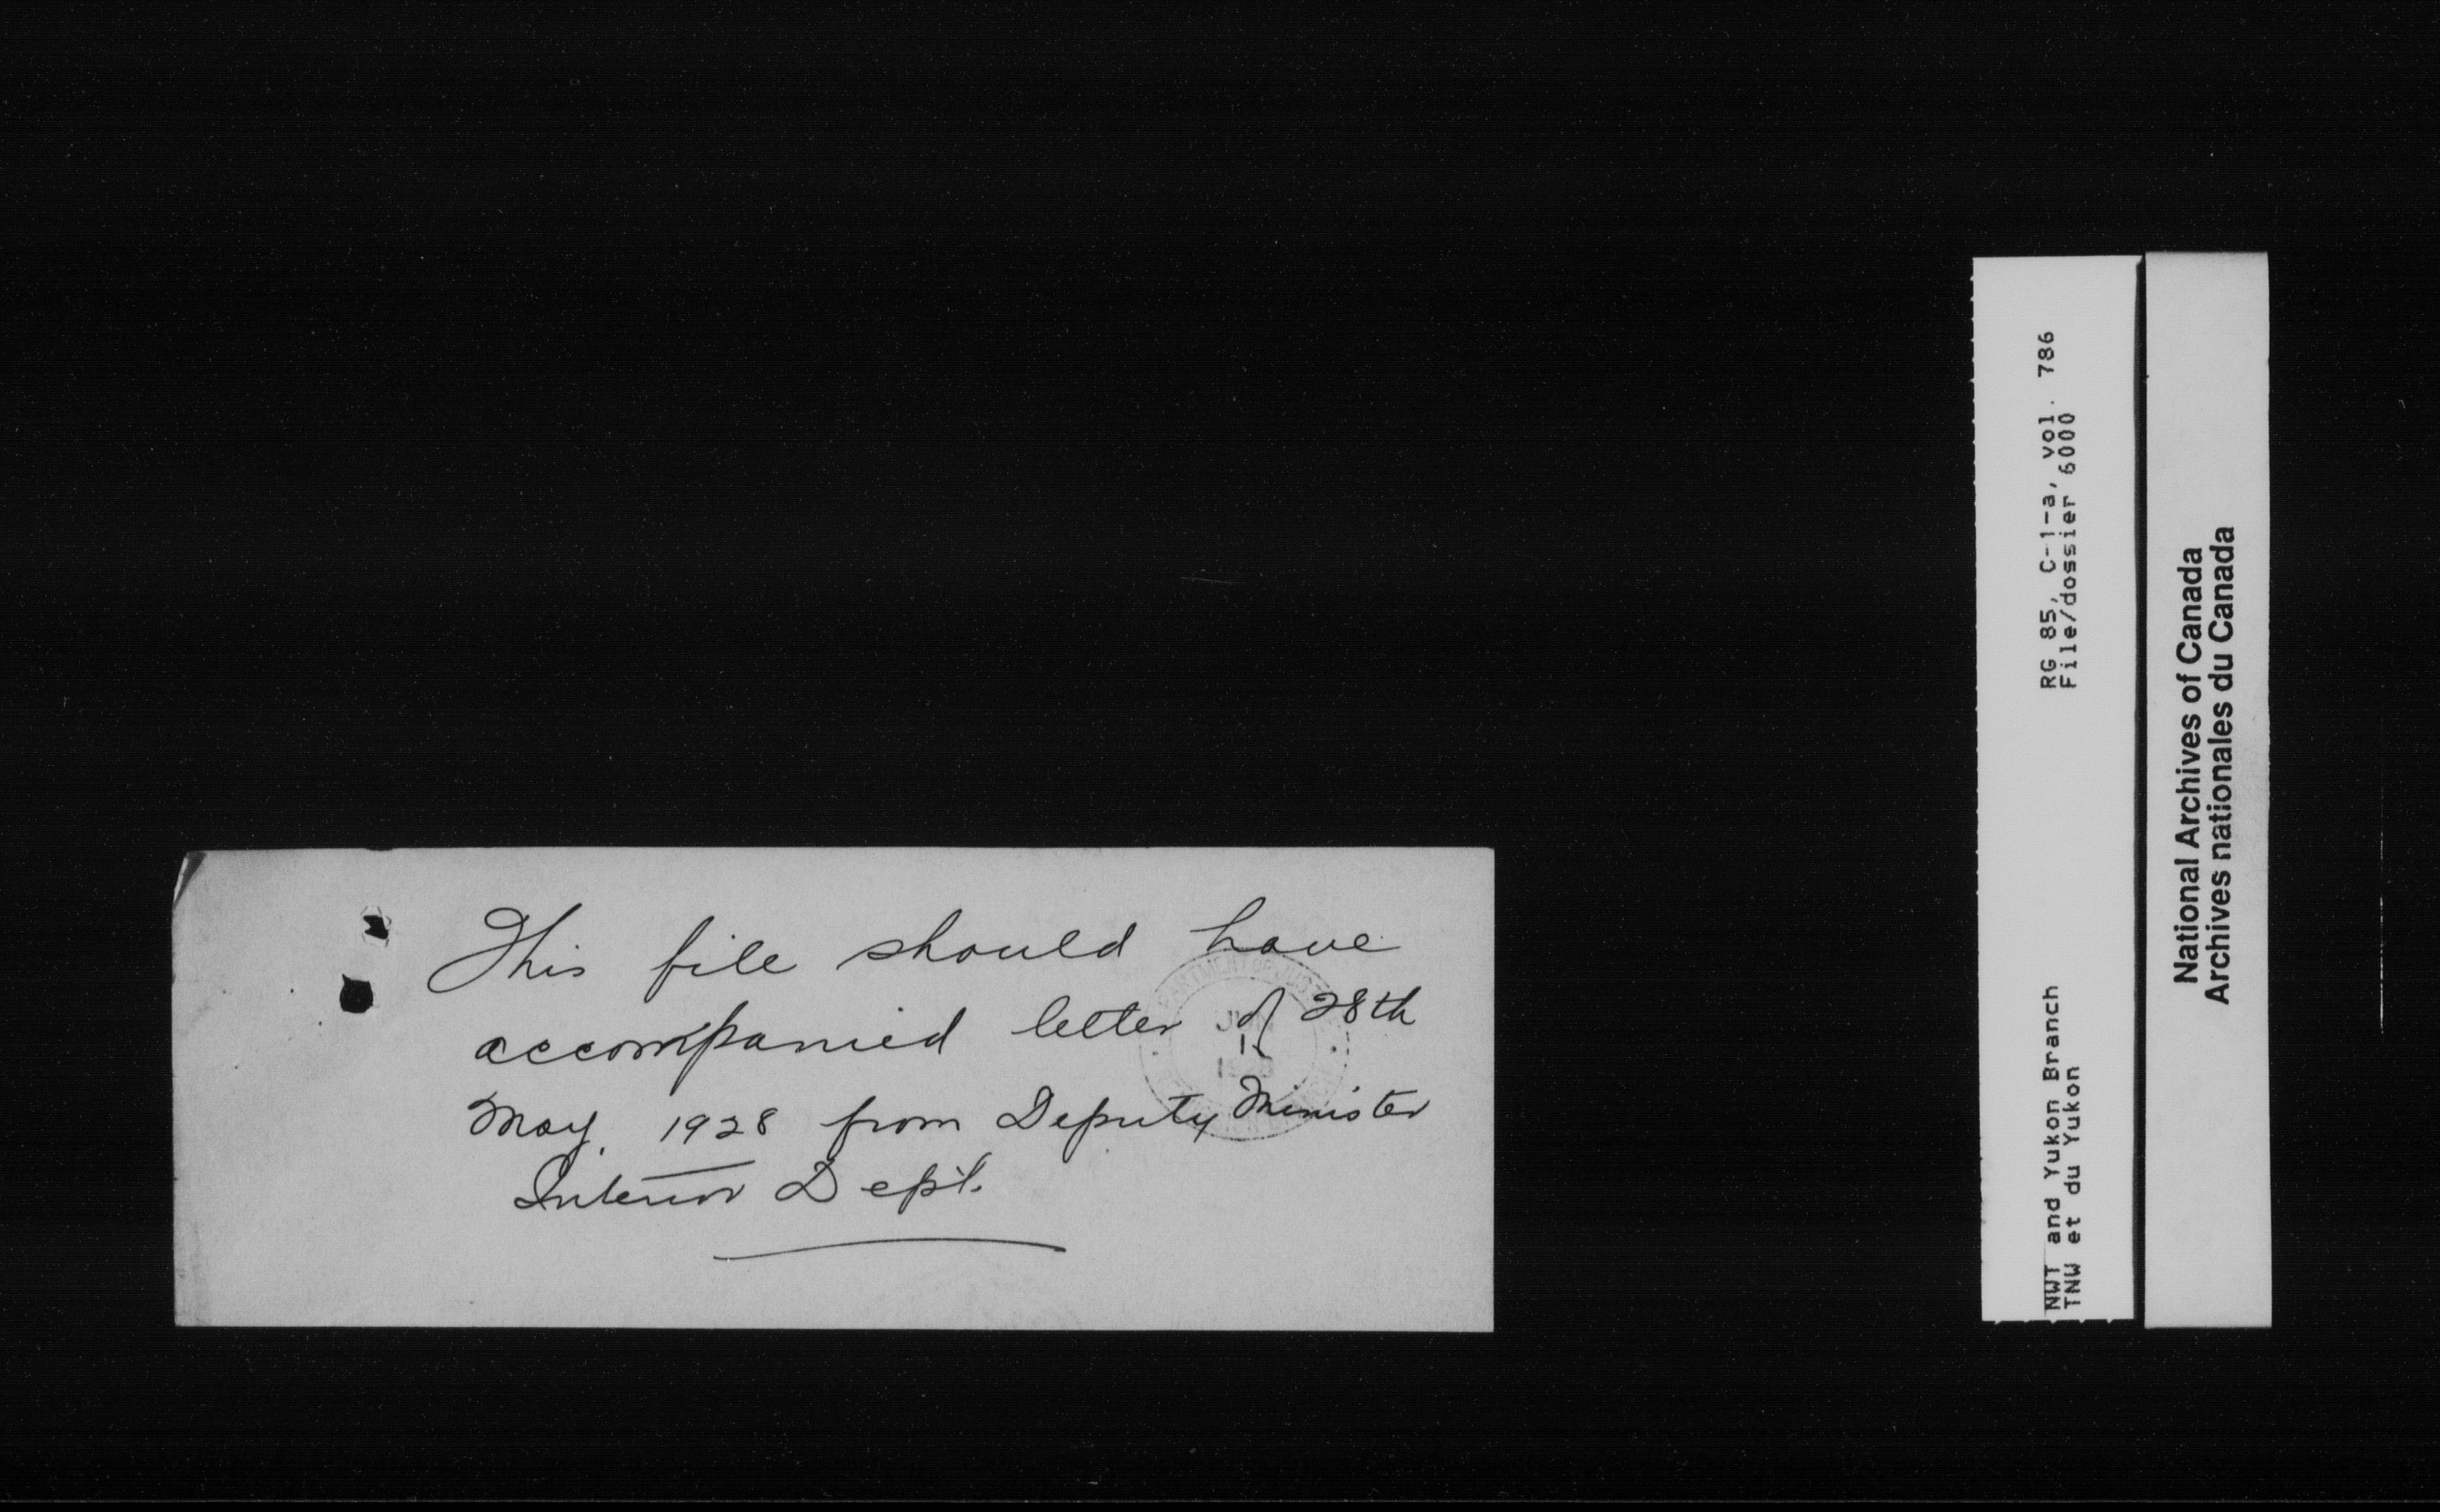 This file should have
accompanied letter of 28th
May, 1928 from Deputy Minister
Interior Dept.
JUN
1
NWT and Yukon Branch RG 85, C-1-a, vol. 786
TNW et du Yukon File/dossier 6000
National Archives of Canada
Archives nationales du Canada